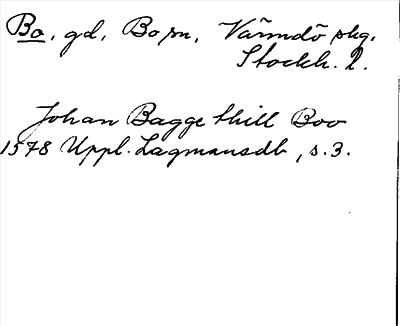 Bo, gd, Bo sn, Värmdö skg.
Stockh. l.
Johan Bagge till Boo
1578 Uppl. Lagmansdb, s. 3.